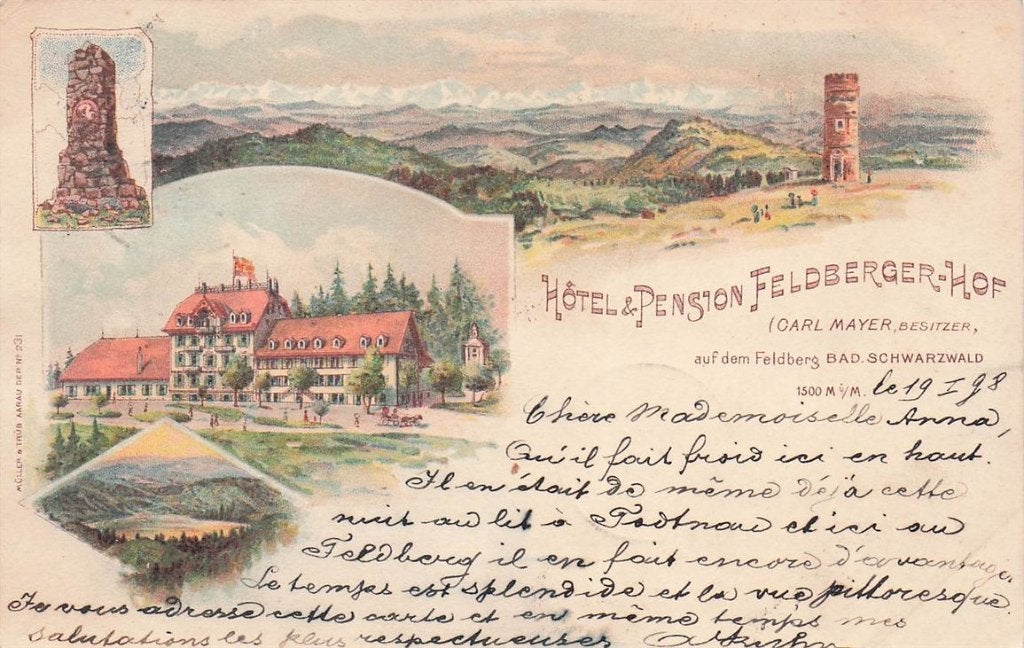 HÔTEL & PENSION FELDBERGER-HOF
(CARL MAYER, BESITZER,
auf dem Feldberg BAD. SCHWARZWALD
1500 M ü/M.
le 19 I 98
Chère Mademoiselle Anna,
Qu'il fait froid ici en haut.
Il en était de même déjà cette
nuit au lit à Todtnau et ici au
Feldberg il en fait encore d'avantage.
Le temps est splendide et la vue pittoresque.
Je vous adresse cette carte et en même temps mes
salutations les plus respectueuses
MÜLLER & TRÜB AARAU DEP. Nº 231